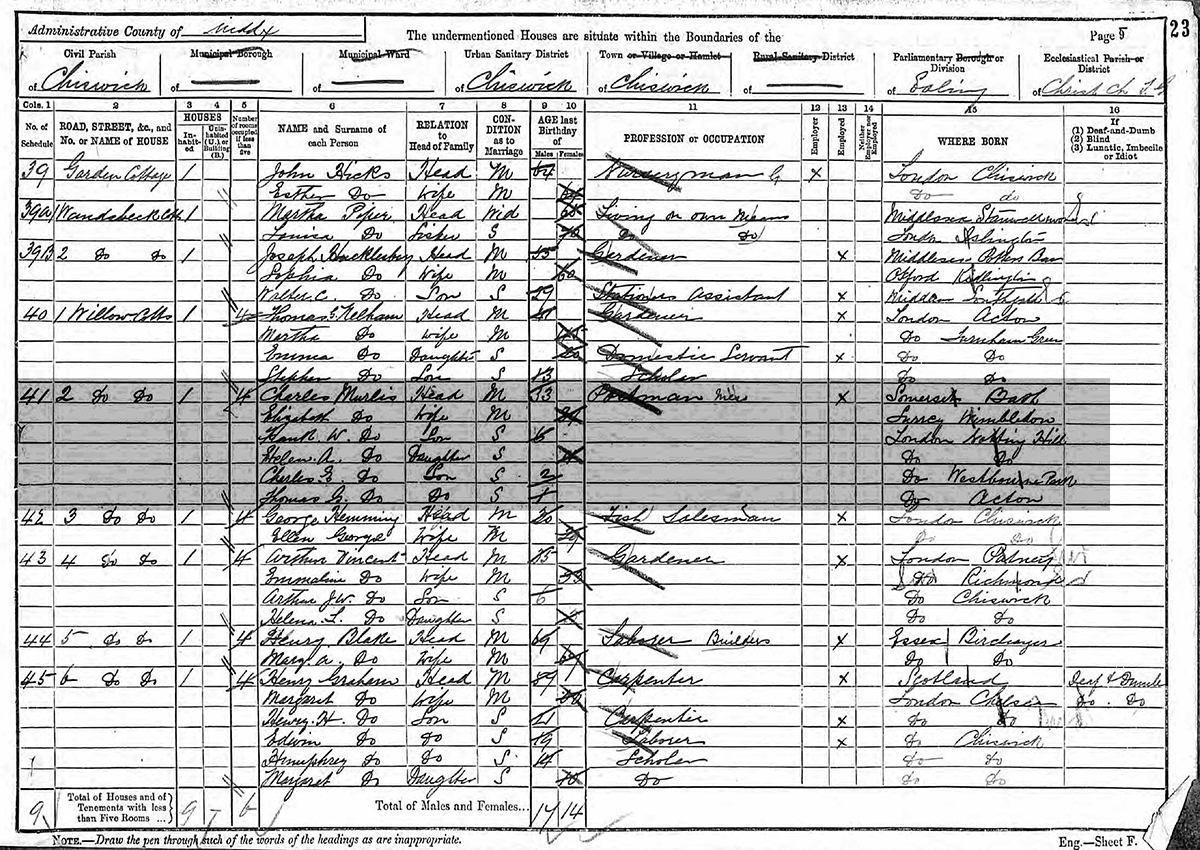 Administrative County of Middx The undermentioned Houses are situate within the Boundaries of the Page 5 23
Civil Parish Municipal Borough Municipal Ward Urban Sanitary District Town or Village or Hamlet Rural Sanitary District Parliamentary Borough or Division Ecclesiastical Parish or District
of Chiswick of of of Chiswick of Chiswick of of Ealing of Christ Ch T. G
Cols. 1 2 3 4 5 6 7 8 9 10 11 12 13 14 15 16
No. of Schedule ROAD, STREET, &c., and No. or NAME of HOUSE HOUSES Inhabited Uninhabited (U.) or Building (B.) Number of rooms occupied if less than five NAME and Surname of each Person RELATION to Head of Family CONDITION as to Marriage AGE last Birthday of Males Females PROFESSION or OCCUPATION Employer Employed Neither Employer nor Employed WHERE BORN If (1) Deaf-and-Dumb (2) Blind (3) Lunatic, Imbecile or Idiot
39 Garden Cottage 1 John Hicks Head M 64 Nurseryman x London Chiswick
Esther Do Wife M Do do
39a 1 Wandsbeck Cotts 1 Martha Piper Head Wid Living on own Means Middlesex
Louisa Do Sister S Do Do London Islington
39B 2 Do Do 1 Joseph Hucklesbury Head M Gardener x Middlesex Potters Bar
Sophia Do Wife M 60 Oxford Kidlington
Walter C. Do Son S 29 Stationers Assistant x Middlesex Southgate
40 1 Willow Cotts 1 4 Thomas Kelham Head M Gardener x London Acton
Martha Do Wife M Do Turnham Green
Emma Do Daughter S 20 Domestic Servant x Do Do
Stephen Do Son S 13 Scholar Do Do
41 2 Do Do 1 4 Charles Murlis Head M 33 Postman x Somerset Bath
Elizabeth Do Wife M Surrey Wimbledon
Frank W. Do Son S 6 London Notting Hill
Helen A. Do Daughter S Do Do
Charles E Do Son S 2 Do Westbourne Park
Thomas G. Do Do S Do Acton
42 3 Do Do 1 4 George Hemming Head M Fish Salesman x London Chiswick
Ellen George Wife M 29 Do Do
43 4 Do Do 1 4 Arthur Vincent Head M Gardener x London Putney
Emmaline Do Wife M 33 Do Richmond
Arthur J.W. Do Son S 6 Do Chiswick
Helena L. Do Daughter S Do Do
44 5 Do Do 1 4 Henry Blake Head M 69 Labourer Builders x Essex Birchanger
Mary A. Do Wife M Do Do
45 6 Do Do 1 4 Henry Graham Head M Carpenter x Scotland Deaf & Dumb
Margaret Do Wife M London Chelsea Do Do
Henry H. Do Son S 21 Carpenter x Do Do
Edwin Do Do S 19 Laborer x Do Chiswick
Humphrey Do Do S 14 Scholar Do Do
Margaret Do Daughter S 10 Do Do Do
9 Total of Houses and of Tenements with less than Five Rooms ... 9 6 Total of Males and Females... 17 14
NOTE.—Draw the pen through such of the words of the headings as are inappropriate. Eng.—Sheet F.